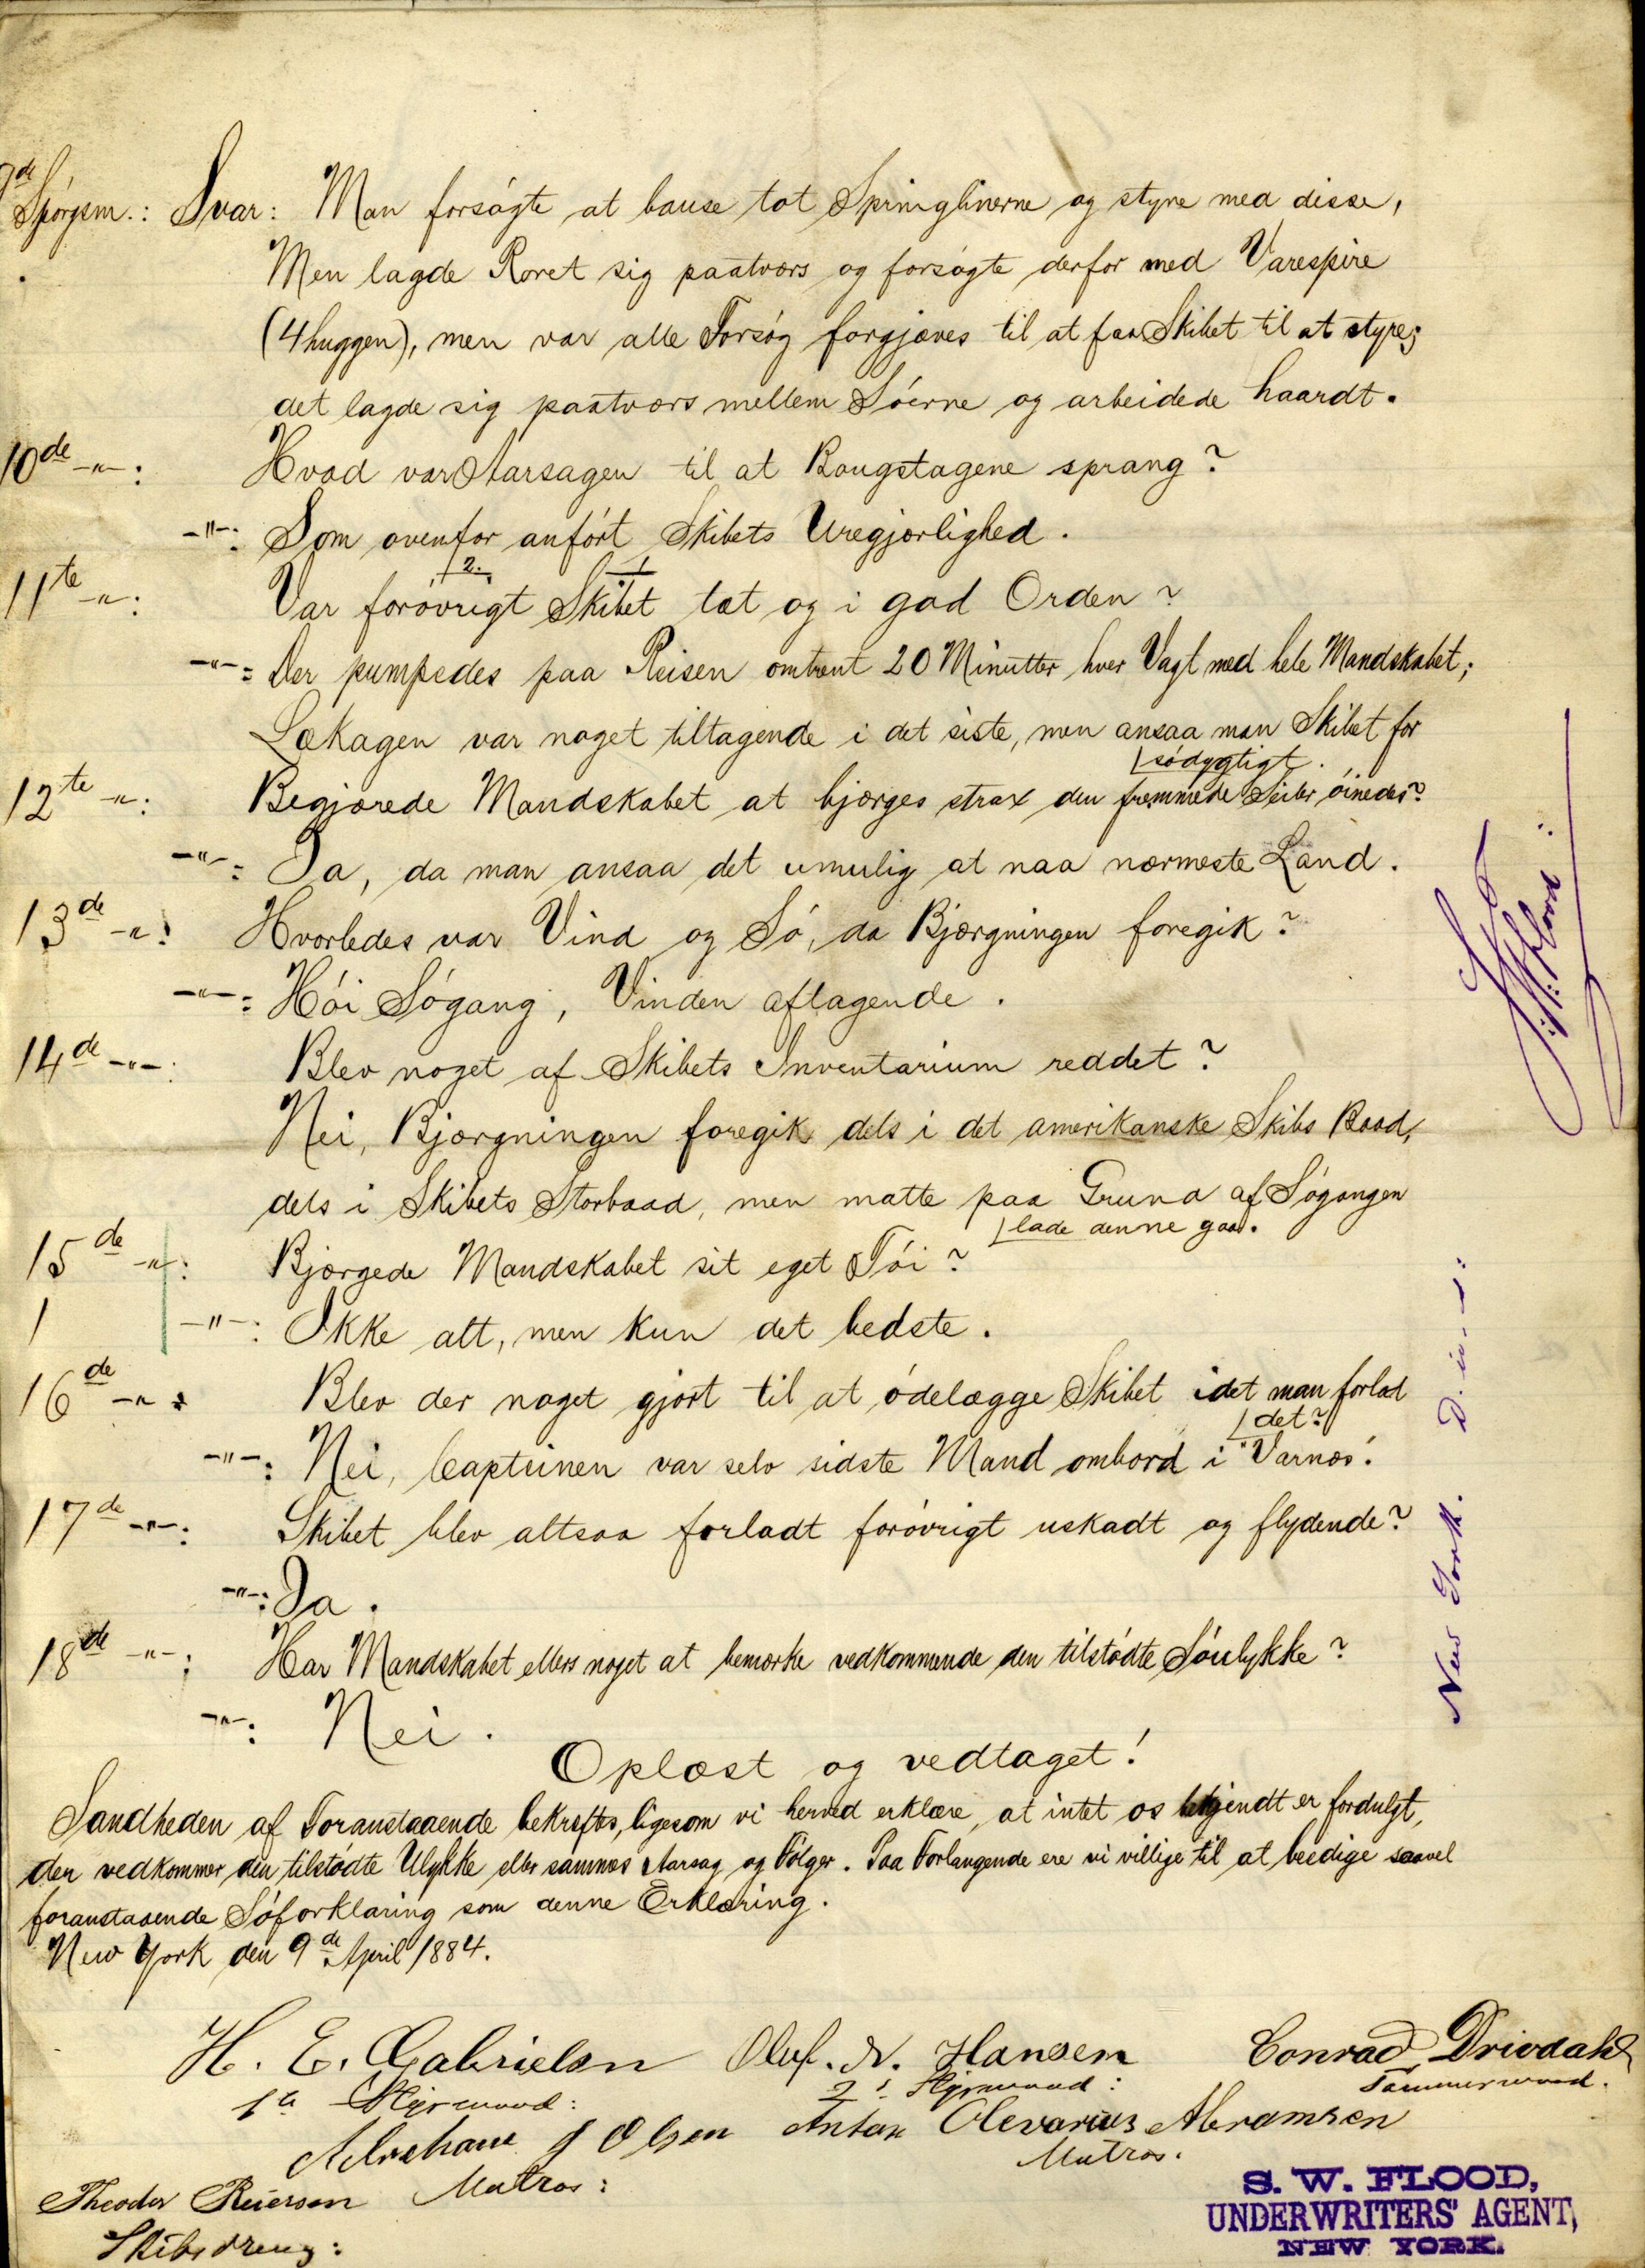 9de
Spórgsm.: Svar: Man forsógte at hause tot Springlinerne og styre med disse,
Men lagde Roret sig paatværs og forsógte derfor med Varespire
(4huggen), men var alle Forsóg forgjæves til at faa Skibet til at styre;
det lagde sig paatværs mellem Sóerne og arbeidede haardt.
10de -"-: Hvad var Aarsagen til at Bougstagene sprang?
-"-: Som ovenfor anfórt Skibets Uregjærlighed.
2. 1
11te -"-: Var foróvrigt Skibet tæt og i god Orden?
-"-: Der pumpedes paa Reisen omtrent 20 Minutter hver Vagt med hele Mandskabet;
Lækagen var noget tiltagende i det siste, men ansaa man Skibet for
sódygtigt.
12te -"-: Begjærede Mandskabet at bjærges strax den fremmede Seiler óinedes?
-"-: Ja, da man ansaa det umulig at naa nærmeste Land.
13de -"-: Hvorledes var Vind og Só, da Bjærgningen foregik?
-"-: Hói Sógang, Vinden aftagende.
14de -"-: Blev noget af Skibets Inventarium reddet?
Nei, Bjærgningen foregik dels i det amerikanske Skibs Baad,
dels i Skibets Storbaad, men matte paa Grund af Sógangen
lade denne gaa.
15de -"-: Bjærgede Mandskabet sit eget Tói?
1 -"-: Ikke alt, men kun det bedste.
16de -"-: Blev der noget gjort til at ódelægge Skibet idet man forlod
det?
-"-: Nei, Capteinen var selv sidste Mand ombord i "Varnæs".
17de -"-: Skibet blev altsaa forladt foróvrigt uskadt og flydende?
-"-: Ja.
18de -"-: Har Mandskabet ellers noget at bemærke vedkommende den tilstódte Sóulykke?
-"-: Nei.
Oplæst og vedtaget!
Sandheden af Foranstaaende bekræftes, ligesom vi herved erklære, at intet os bekjendt er fordulgt,
der vedkommer den tilstódte Ulykke eller sammes Aarsag og Fólger. Paa Forlangende ere vi villige til at beedige saavel
foranstaaende Sóforklaring som denne Erklæring.
New York den 9de April 1884.
H. E. Gabrielsn Oluf. N. Hansen Conrad Drivdahl
1te Styrmand: 2t Styrmand: Tømmermand.
Abraham J Olsen Anton Olevarius Abramsen
Matros: Matros.
Theodor Reierson
Skibsdreng:
S. W. FLOOD,
UNDERWRITERS' AGENT,
NEW YORK.
New York.